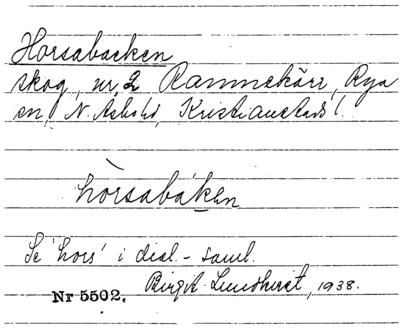 Horsabacken
skog, nr 2 Rammekärr, Rya
sn, N. Åsbo hd, Kristianstads l.
hòrsabáken
Se 'hors' i dial.-saml.
Nr 5502. Birgit Lundqvist, 1938.